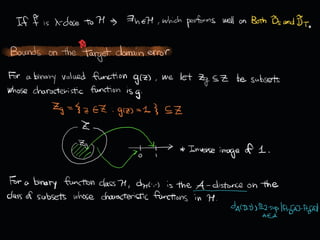 If f̃ is λ-close to H → ∃h∈H, which performs well on Both D̃s and D̃T.
Bounds on the Target domain error
For a binary valued function g(z), we let Zg ⊆ Z be subsets
whose characteristic function is g.
Zg = { z ∈ Z : g(z) = 1 } ⊆ Z
Z
Zg
0 1
* Inverse image of 1.
For a binary function class H, dH(·,·) is the A-distance on the
class of subsets whose characteristic functions in H.